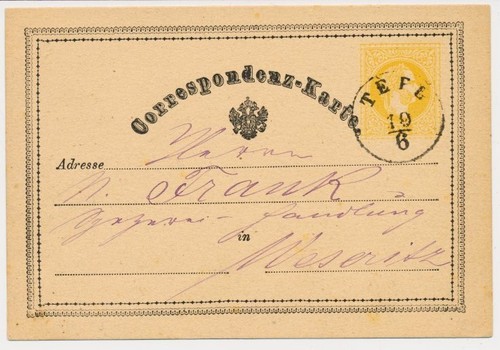 Correspondenz-Karte.
TEPL
19
6
Adresse
Herrn
Frank
Handlung
in
Weseritz